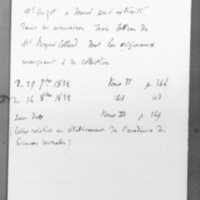 Mr Guizot a donné par extrait
Dans ses mémoires, trois lettres de
Mr Royer Collard dont les originaux
manquent à la collection
Du 29 7bre 1832 Tome III p. 366
Du 14 8bre 1832
Sans date Tome III p. 149
(Lettre relative au rétablissement de l'académie des
Sciences morales)